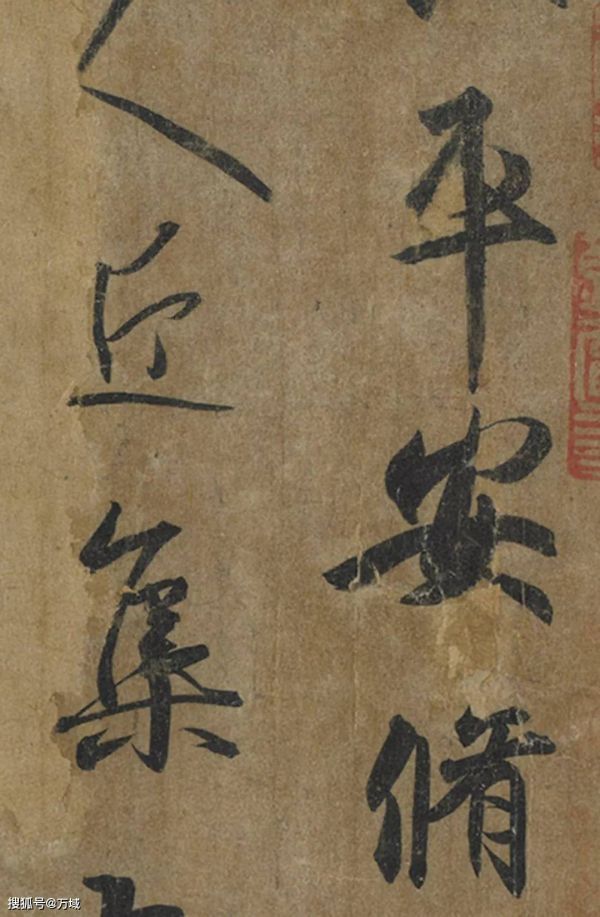 平安脩
人近集
搜狐号@万域